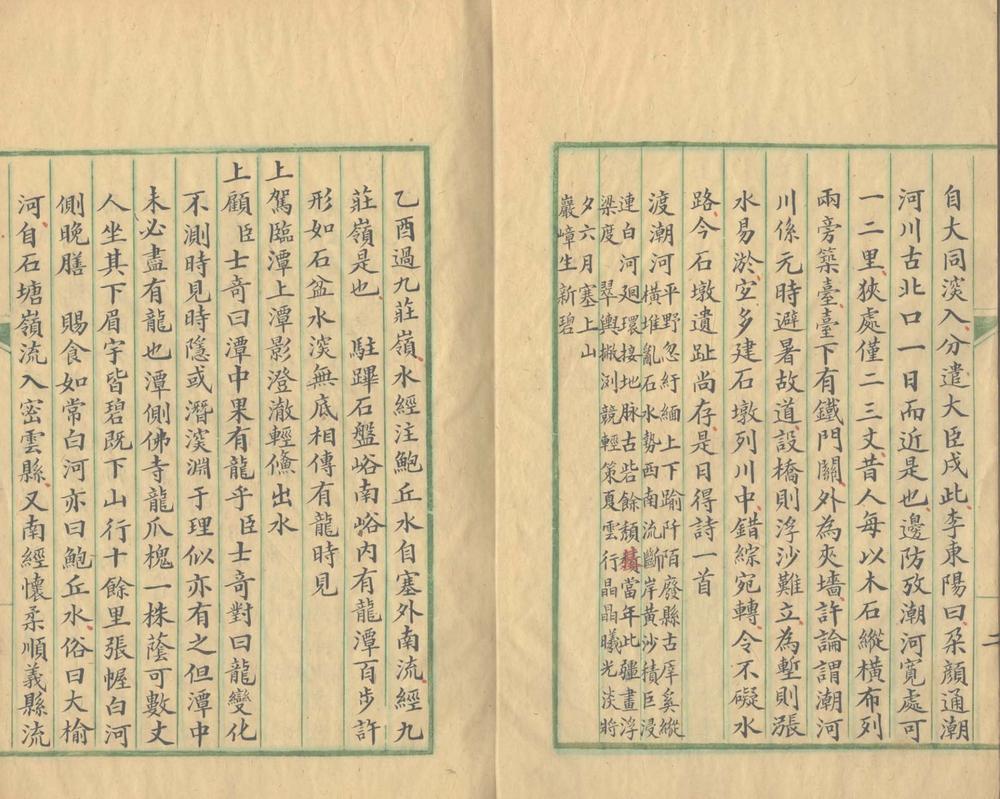 自大同深入分遣大臣戍此李東陽曰朶顏通潮
河川古北口一日而近是也邊防攷潮河寬處可
一二里狹處僅二三丈昔人每以木石縱橫布列
兩旁築臺臺下有鐵門關外為夾墻許論謂潮河
川係元時避暑故道設橋則浮沙難立為塹則漲
水易淤空多建石墩列川中錯綜宛轉令不礙水
路今石墩遺趾尚存是日得詩一首
渡潮河平野忽紆緬上下踰阡陌廢縣古厗奚縱
橫堆亂石水勢西南流斷岸黃沙積巨浸
連白河廻環接地脉古砦餘頹積當年此疆畫浮
梁度翠輿揪浏競輕策夏雲行晶晶曦光淡將
夕六月塞上山
巖嶂生新碧
乙酉過九莊嶺水經注鮑丘水自塞外南流經九
莊嶺是也駐蹕石盤峪南峪內有龍潭百步許
形如石盆水深無底相傳有龍時見
上駕臨潭上潭影澄澈輕鯈出水
上顧臣士奇曰潭中果有龍乎臣士奇對曰龍變化
不測時見時隱或潛深淵于理似亦有之但潭中
未必盡有龍也潭側佛寺龍爪槐一株蔭可數丈
人坐其下眉宇皆碧既下山行十餘里張幄白河
側晚膳賜食如常白河亦曰鮑丘水俗曰大榆
河自石塘嶺流入密雲縣又南經懷柔順義縣流
二